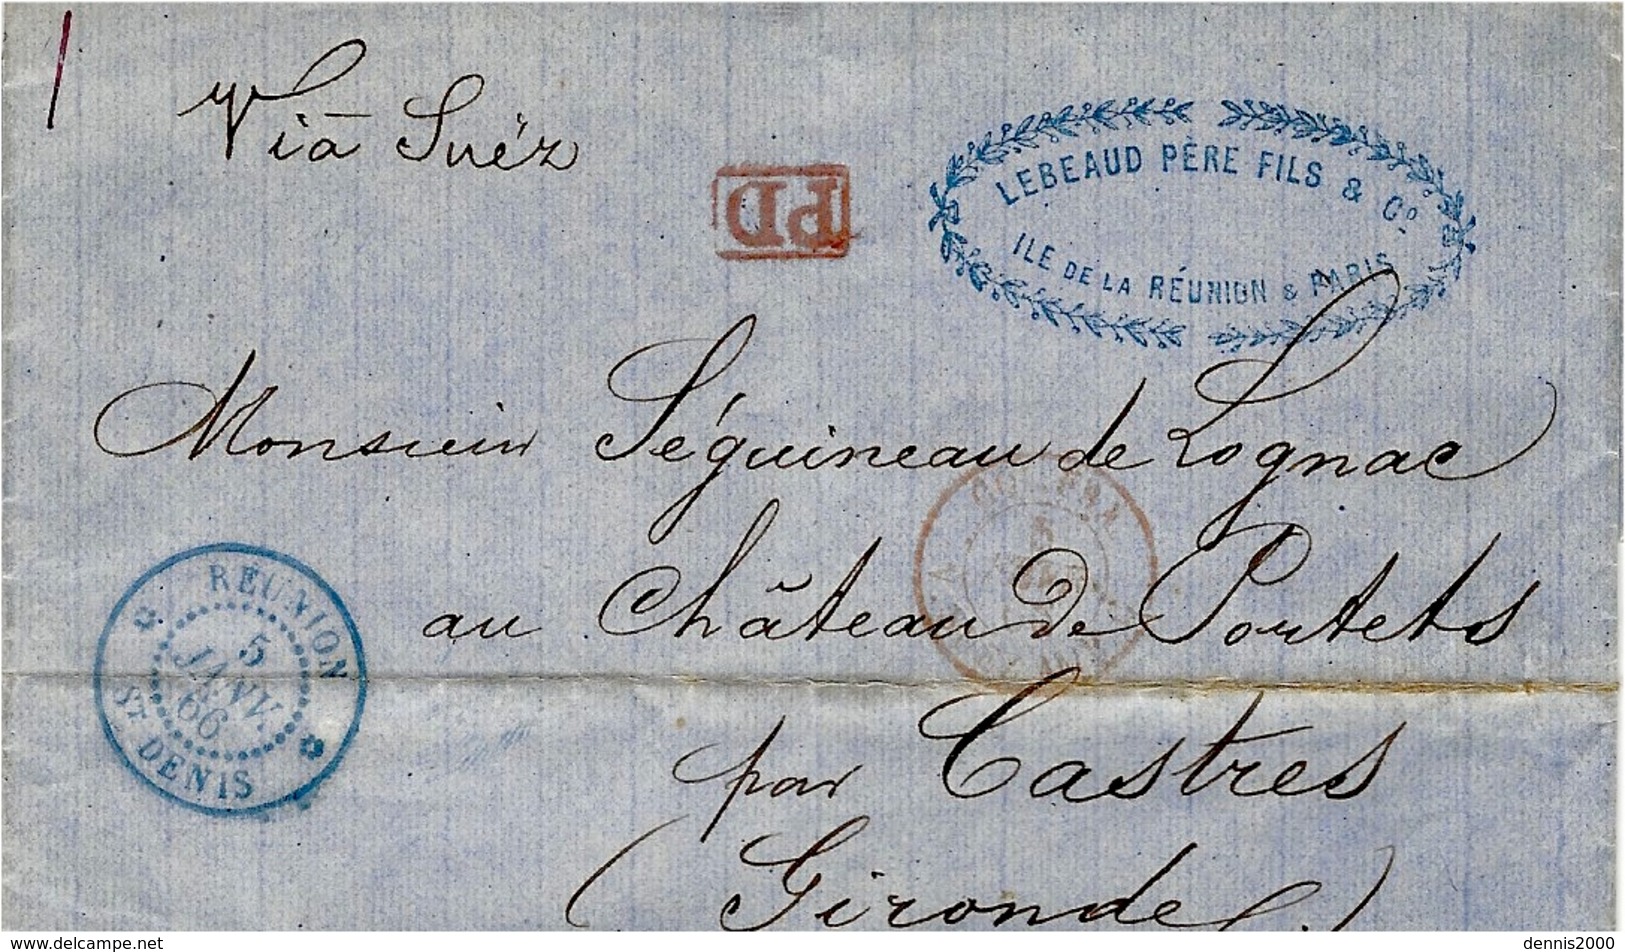 Viā Suëz
PD
LEBEAUD PÈRE FILS & Co.
ILE DE LA RÉUNION & PARIS
Monsieur Séguineau de Lognac
au Château de Portets
RÉUNION
5
JANV.
66
ST DENIS
par Castres
(Gironde.)
www.delcampe.net
dennis2000